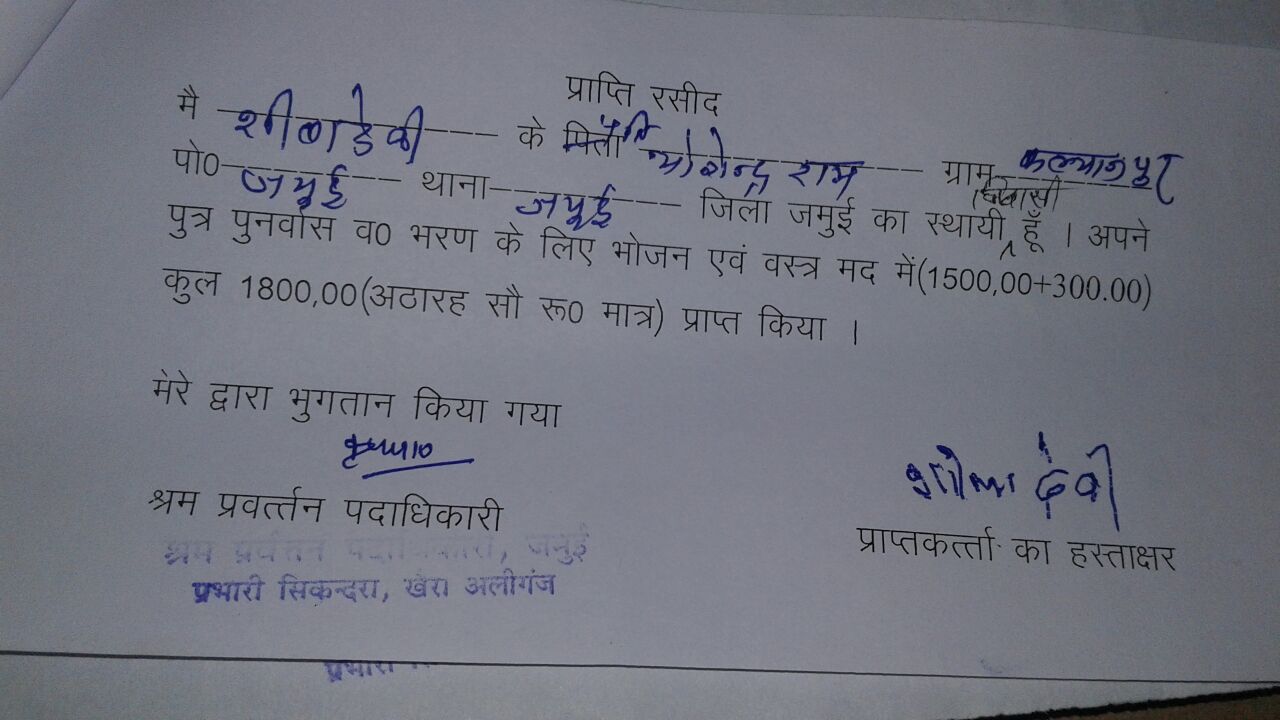 प्राप्ति रसीद
मै शीला देवी के पिता पति योगेन्द्र राम ग्राम कल्यानपुर
पो0 जमुई थाना जमुई जिला जमुई का स्थायी निवासी हूँ । अपने
पुत्र पुनर्वास व0 भरण के लिए भोजन एवं वस्त्र मद में(1500,00+300.00)
कुल 1800,00(अठारह सौ रू0 मात्र) प्राप्त किया ।
मेरे द्वारा भुगतान किया गया
शीला देवी
श्रम प्रवर्त्तन पदाधिकारी
प्राप्तकर्त्ता का हस्ताक्षर
श्रम प्रवर्तन पदाधिकारी, जमुई
प्रभारी सिकन्दरा, खैरा अलीगंज
प्रभारी